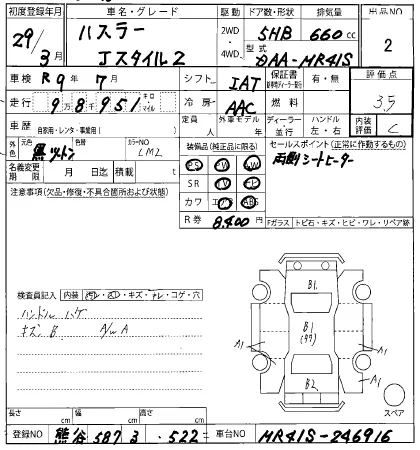 初度登録年月 車名・グレード 駆動 ドア数・形状 排気量 出品NO
29/3月 ハスラー Jスタイル2 2WD・4WD 5HB 660cc 2
型式 DAA-MR41S
車検 R9年7月 シフト IAT 保証書 有・無 評価点
走行 9万8951 キロ・マイル 冷房 AAC 燃料 3.5
車歴 自家用・レンタ・事業用( ) 定員 人 外車モデル 年 ディーラー・並行 ハンドル 左・右 内装評価 C
外色 元色 黒ツートン 色替 カラーNO
装備品(純正品に限る) セールスポイント(正常に作動するもの)
PS PW 両側シートヒーター
名義変更期限 月 日迄 積載 t SR TV ナビ
注意事項(欠品・修復・不具合箇所および状態) カワ エアB ABS
R券 8,400円
Fガラス トビ石・キズ・ヒビ・ワレ・リペア跡
検査員記入 内装 汚レ・キズ・ヤレ・コゲ・穴
ハンドル ハゲ
キズ B A/W A
B1
A1 B1 A1
B2 A1
スペア
長さ cm 幅 cm 高さ cm
登録NO 熊谷 587 ヨ ・522 車台NO MR41S-246916